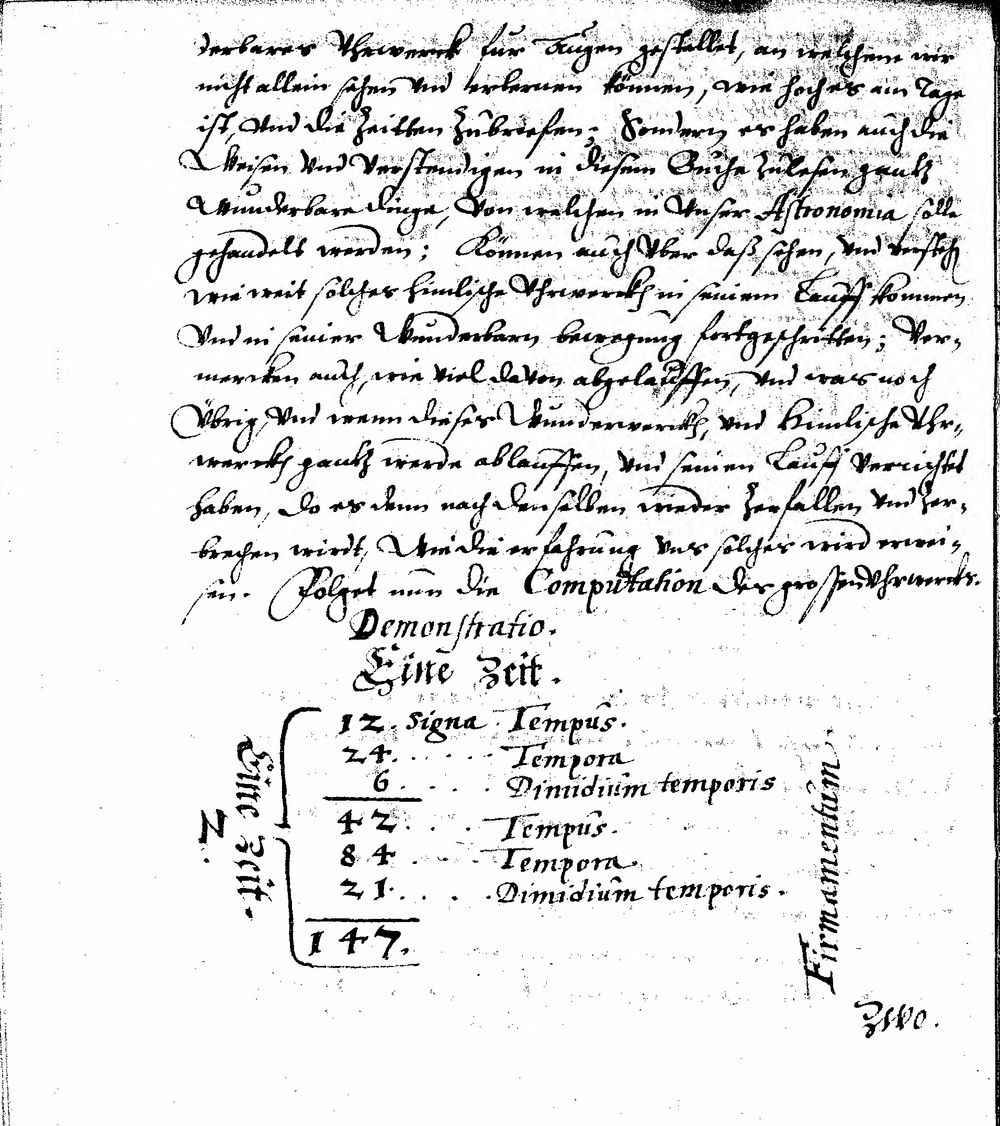 derbares Uhrwerck für Augen gestellet, an welchem wir
nicht allein sehen und erlernen können, wie hoch es am Tage
ist, Und die Zeitten Zubrüefen; Sondern es haben auch die
Weisen Und Verstendigen in diesem Buche Zulesen gantz
Wunderbare dinge, Von welchen in Unser Astronomia solle
gehandelt werden; Können auch Uber daß sehen, und verstehn
wie weit solches himlische Uhrwerckh in seinem Lauff kommen
Und in seiner Wunderbarn bewegung fortgeschritten; Ver-
mercken auch, wie viel davon abgelauffen, Und was noch
Übrig, Und wenn dieses Wunderwerckh, und Himlische Uhr-
werckh gantz werde ablauffen, und seinen Lauff Verrichtet
haben, do es denn nach denselben wieder Zerfallen und Zer-
brechen wirdt, Wie die erfahrung uns solches wird erwei-
sen. Folget nun die Computation des grossen Uhrwercks.
Demonstratio.
Eine Zeit.
12. Signa Tempus.
24. . . . . . Tempora
6. . . . . Dimidium temporis
42. . . . Tempus.
84 . . . . Tempora.
21. . . . . Dimidium temporis.
147.
Eine Zeit.
Z.
Firmamentum
Zwo.